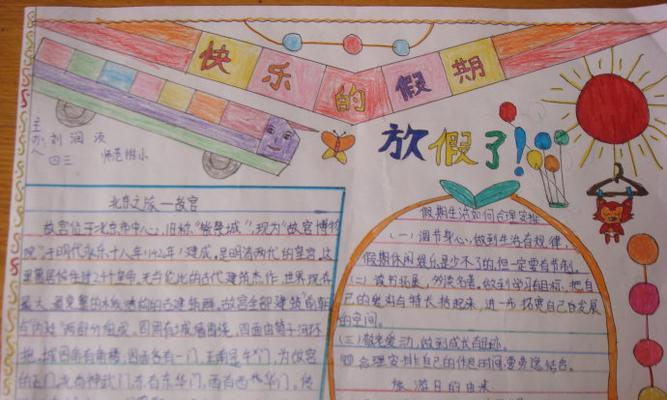 快乐的假期
放假了!
主办人
刘润
四三 师范附小
北京之旅—故宫
故宫位于北京市中心,旧称"紫禁城",现为"故宫博物
院"于明代永乐十八年(1420年)建成,是明清两代的皇宫,这
里曾居住过24个皇帝,无与伦比的古代建筑杰作,世界现存
最大、最完整的木结构的古建筑群。故宫全部建筑由"前朝
与"内廷"两部分组成,四周有城墙围绕,四面由筒子河环
抱,城四角有角楼,四面各有一门,正南是午门,为故宫
的正门,北有神武门,东有东华门,西有西华门。
假期生活如何合理安排
(一)调节身心,做到生活有规律,
假期休闲娱乐是少不了的,但一定要有节制。
(二)读书拓展,做到学习有目标,把自
己的爱好与特长结起来,进一步拓宽自己的发展
的空间。
(三)做到成长有目标。
合理安排自己的作息时间,要劳逸结合。
旅游日的由来